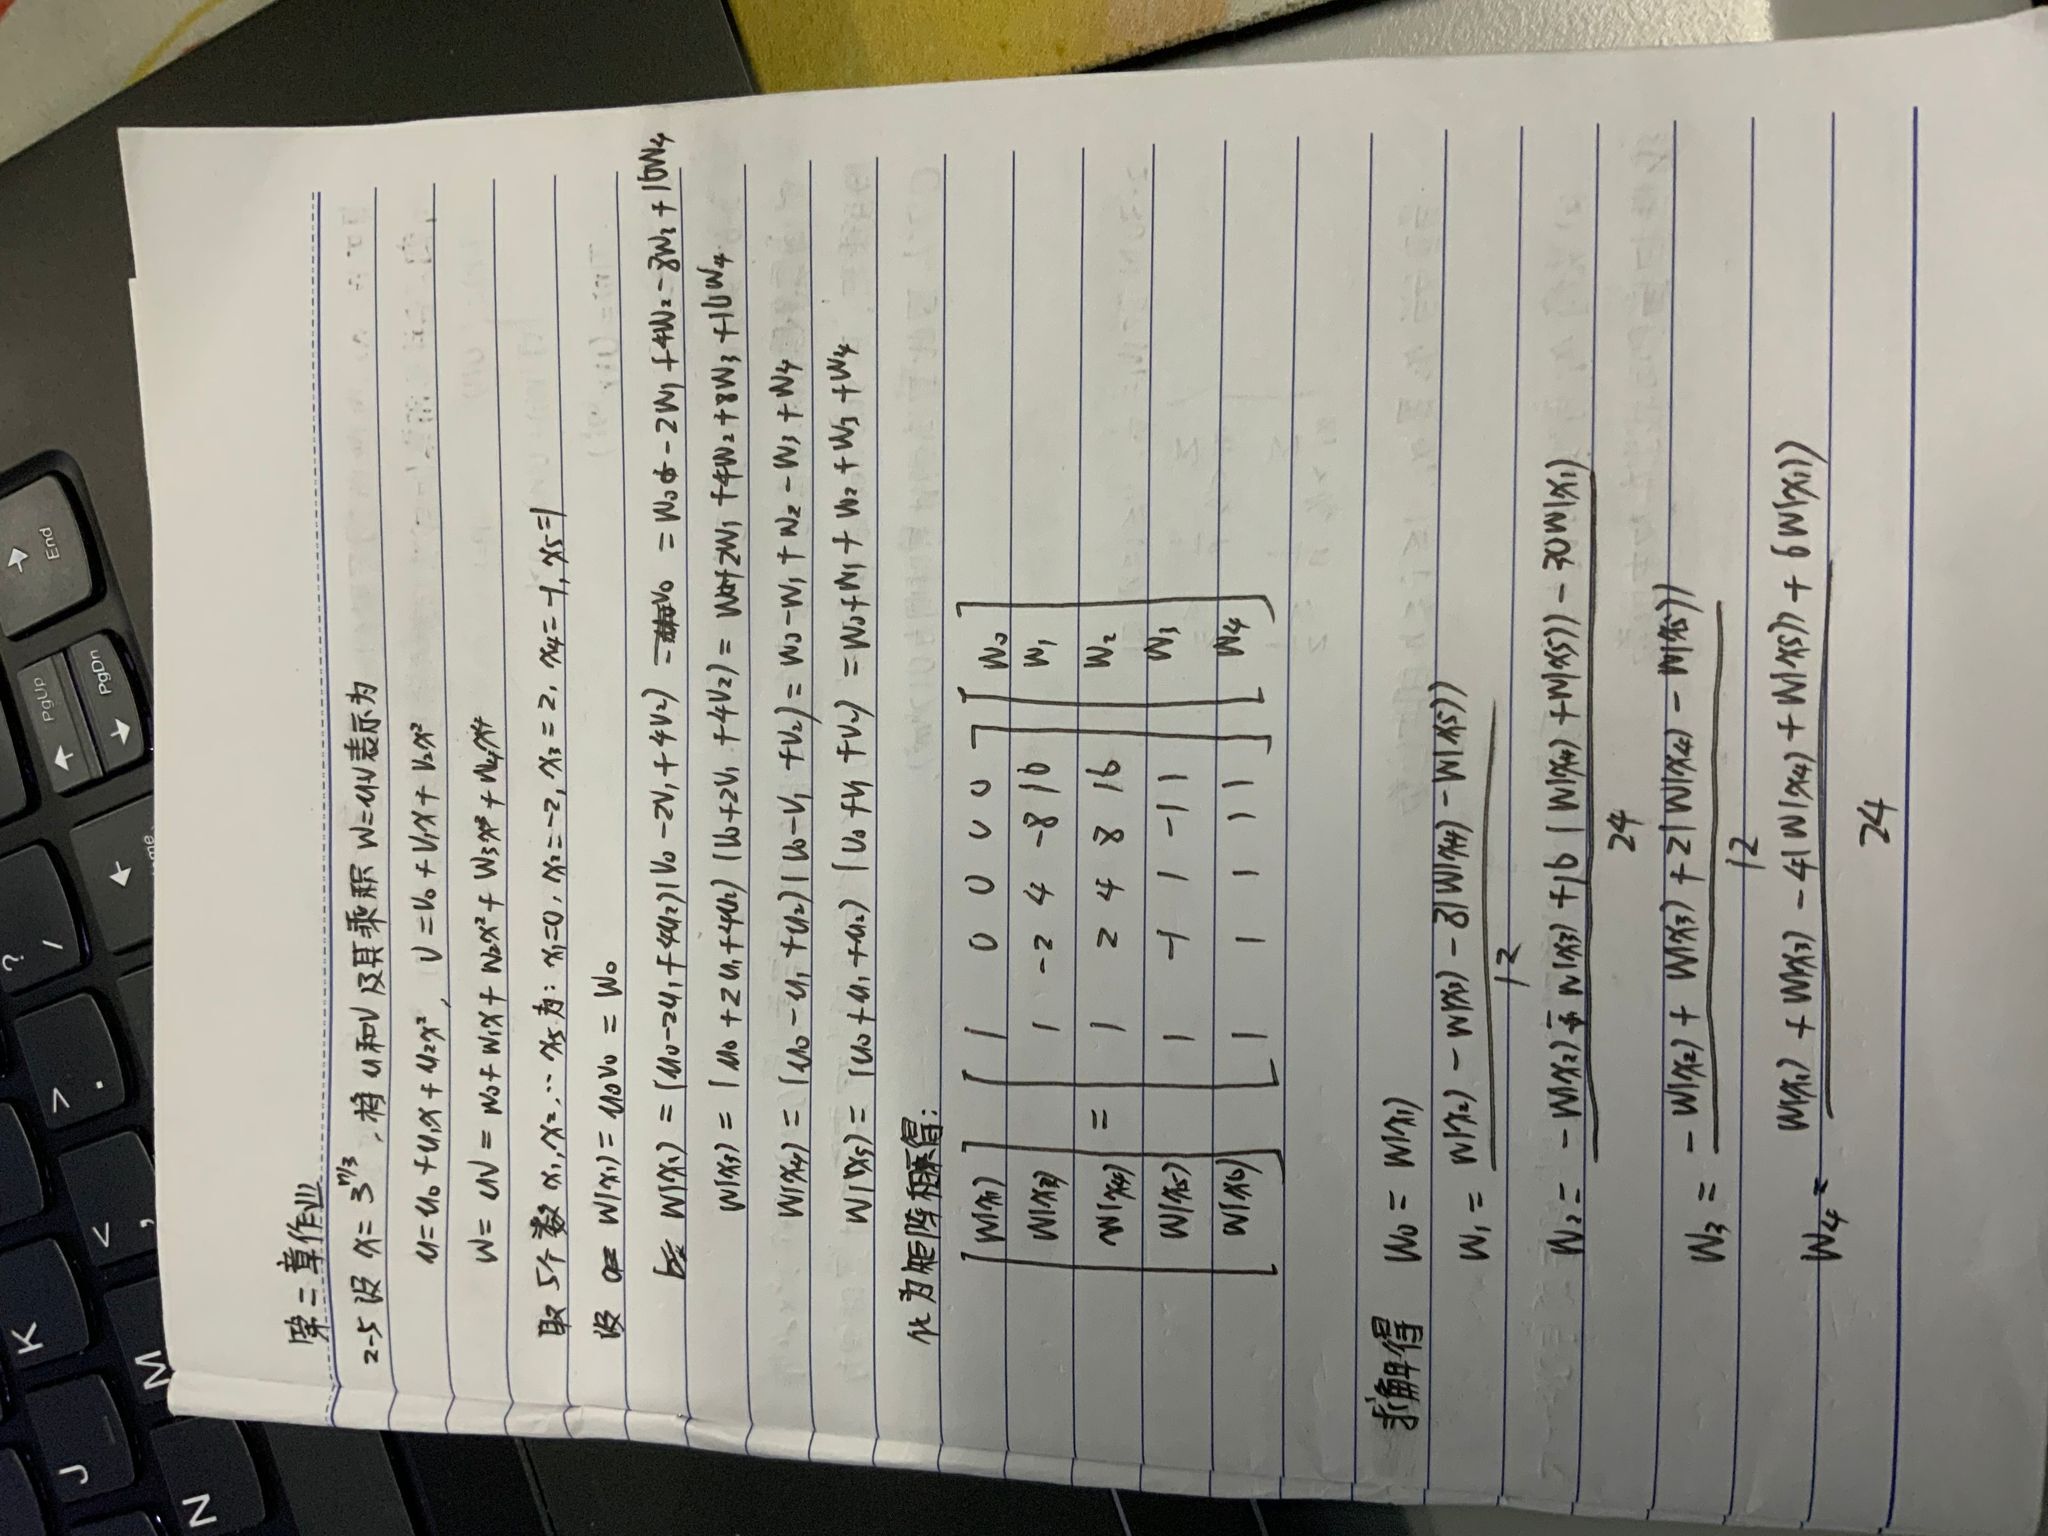 第二章作业
2-5 设 x = 3^{n/3}, 将 u和v 及其乘积 W=uv 表示为
u = u₀ + u₁x + u₂x², v = v₀ + v₁x + v₂x²
W = uv = W₀ + W₁x + W₂x² + W₃x³ + W₄x⁴
取 5个数 x₁, x₂, ... x₅ 为: x₁=0, x₂=-2, x₃=2, x₄=-1, x₅=1
设 W(x₁) = u₀v₀ = W₀
W(x₂) = (u₀-2u₁+4u₂)(v₀-2v₁+4v₂) = W₀-2W₁+4W₂-8W₃+16W₄
W(x₃) = (u₀+2u₁+4u₂)(v₀+2v₁+4v₂) = W₀+2W₁+4W₂+8W₃+16W₄
W(x₄) = (u₀-u₁+u₂)(v₀-v₁+v₂) = W₀-W₁+W₂-W₃+W₄
W(x₅) = (u₀+u₁+u₂)(v₀+v₁+v₂) = W₀+W₁+W₂+W₃+W₄
化为矩阵相乘得:
W(x₁) 1 0 0 0 0 W₀
W(x₃) 1 -2 4 -8 16 W₁
W(x₄) = 1 2 4 8 16 W₂
W(x₅) 1 -1 1 -1 1 W₃
W(x₆) 1 1 1 1 1 W₄
求解得 W₀ = W(x₁)
W₁ = W(x₂) - W(x₃) - 8(W(x₄) - W(x₅))
12
W₂ = -W(x₂) - W(x₃) + 16(W(x₄) + W(x₅)) - 30W(x₁)
24
W₃ = -W(x₂) + W(x₃) + 2(W(x₄) - W(x₅))
12
W₄ = W(x₂) + W(x₃) - 4(W(x₄) + W(x₅)) + 6W(x₁))
24
? /
> .
< ,
K
J
M
N
End
PgUp
PgDn